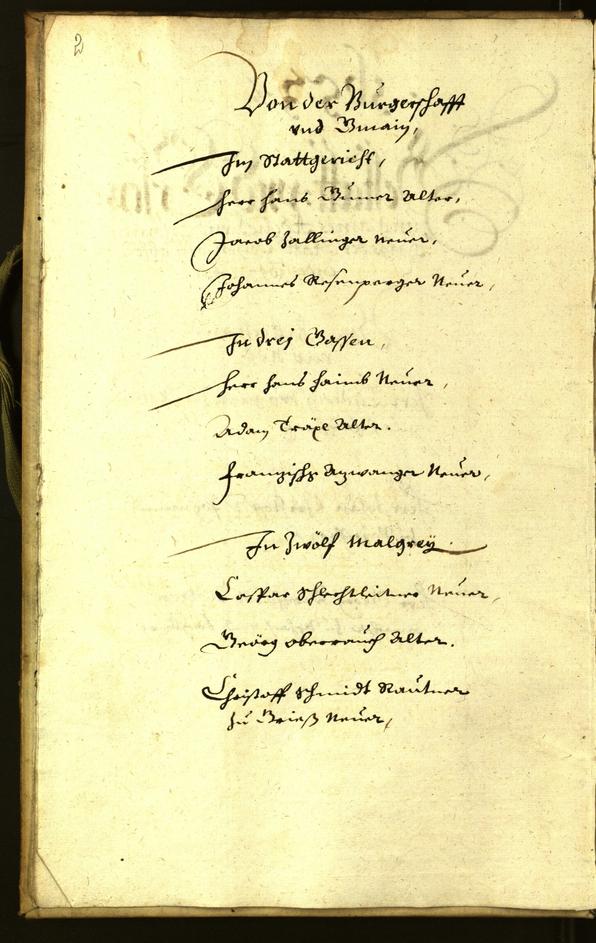 2
Von der Burgerschafft
vnd Gmain,
Im Stattgericht,
Herr Hans Gumer Alter,
Jacob Zallinger Neuer,
Johannes Rosenperger Neuer,
In drej Gassen,
Herr Hans Haimb Neuer,
Adam Träxl Alter.
Franzischg Anwanger Neuer,
In Zwölf Malgrey.
Caspar Schlechtleitner Neuer,
Geörg Oberrauch Alter.
Christoff Schmidt Rautner
zu Grieß Neuer,